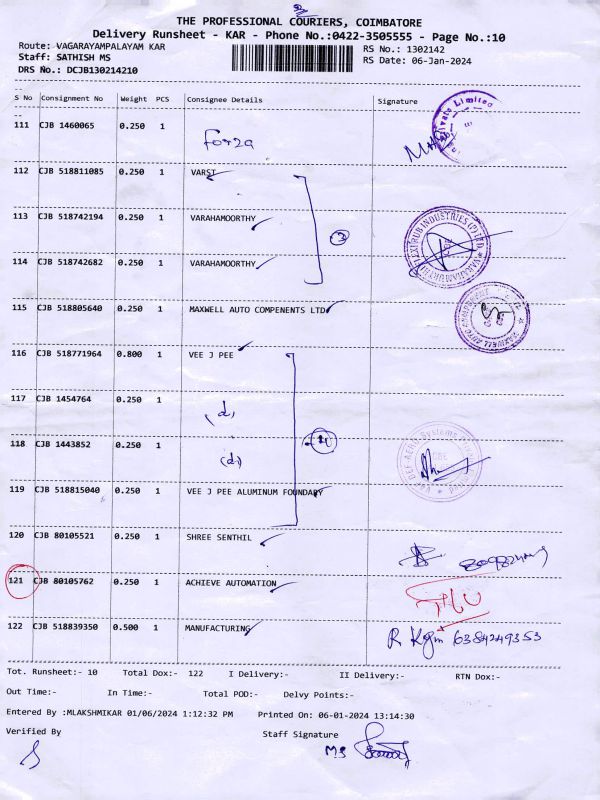 THE PROFESSIONAL COURIERS, COIMBATORE
Delivery Runsheet - KAR - Phone No.:0422-3505555 - Page No.:10
Route: VAGARAYAMPALAYAM KAR RS No.: 1302142
Staff: SATHISH MS RS Date: 06-Jan-2024
DRS No.: DCJB130214210
S No Consignment No Weight PCS Consignee Details Signature
111 CJB 1460065 0.250 1 Forza
112 CJB 518811085 0.250 1 VARST
113 CJB 518742194 0.250 1 VARAHAMOORTHY
114 CJB 518742682 0.250 1 VARAHAMOORTHY
115 CJB 518805640 0.250 1 MAXWELL AUTO COMPENENTS LTD
116 CJB 518771964 0.800 1 VEE J PEE
117 CJB 1454764 0.250 1 (d)
118 CJB 1443852 0.250 1 (d)
119 CJB 518815040 0.250 1 VEE J PEE ALUMINUM FOUNDARY
120 CJB 80105521 0.250 1 SHREE SENTHIL
121 CJB 80105762 0.250 1 ACHIEVE AUTOMATION
122 CJB 518839350 0.500 1 MANUFACTURING R Kgm 6384249353
Tot. Runsheet:- 10 Total Dox:- 122 I Delivery:- II Delivery:- RTN Dox:-
Out Time:- In Time:- Total POD:- Delvy Points:-
Entered By :MLAKSHMIKAR 01/06/2024 1:12:32 PM Printed On: 06-01-2024 13:14:30
Verified By Staff Signature
MS